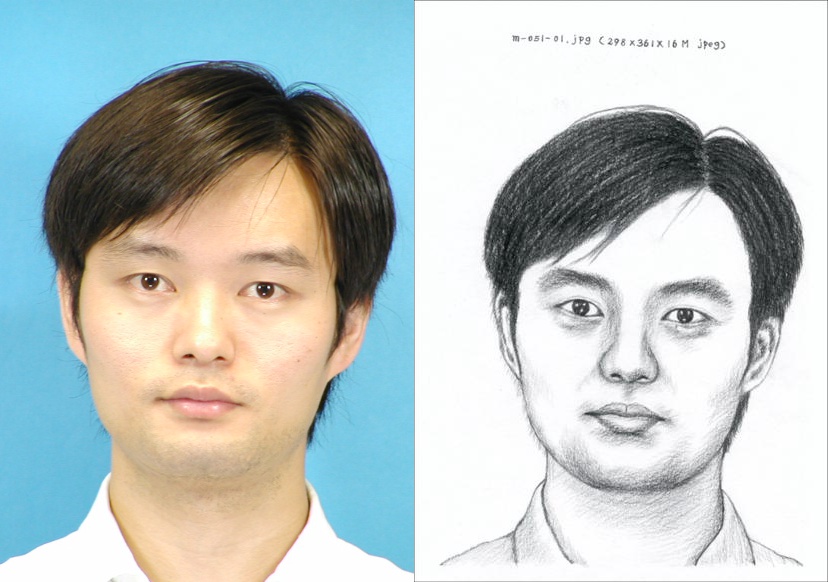 m-051-01.jpg (298×361×16M jpeg)